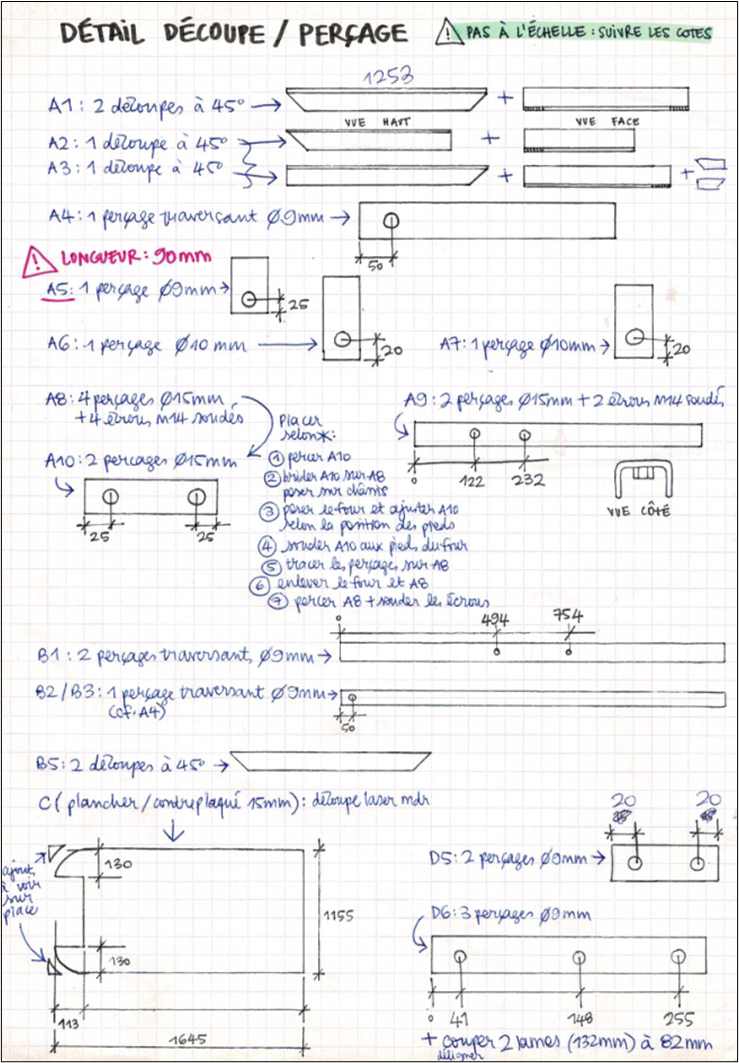 DÉTAIL DÉCOUPE / PERÇAGE
! PAS À L'ÉCHELLE : SUIVRE LES COTES
1253
A1 : 2 découpes à 45° → +
VUE HAUT
VUE FACE
A2 : 1 découpe à 45° +
A3 : 1 découpe à 45° + +
A4 : 1 perçage traversant Ø9mm →
50
! LONGUEUR : 90mm
A5 : 1 perçage Ø9mm →
25
A6 : 1 perçage Ø10mm →
20
A7 : 1 perçage Ø10mm →
20
A8 : 4 perçages Ø15mm
+ 4 écrous M14 soudés
A10 : 2 percages Ø15mm
25
25
Placer
selon* :
① percer A10
② brider A10 sur A8
poser sur châssis
③ poser le four et ajuster A10
selon la position des pieds
④ souder A10 aux pieds du four
⑤ tracer les perçages sur A8
⑥ enlever le four et A8
⑦ percer A8 + souder les écrous
A9 : 2 perçages Ø15mm + 2 écrous M14 soudés
0
122
232
VUE CÔTÉ
0
494
754
B1 : 2 perçages traversant, Ø9mm →
B2 / B3 : 1 perçage traversant Ø9mm →
(cf. A4)
50
B5 : 2 découpes à 45° →
C ( plancher / contreplaqué 15mm) : découpe laser mdr
ajout,
à voir
sur
place
130
130
1155
113
1645
20
20
D5 : 2 perçages Ø9mm →
D6 : 3 perçages Ø9mm
0
41
148
255
+ couper 2 lames (132mm) à 82mm